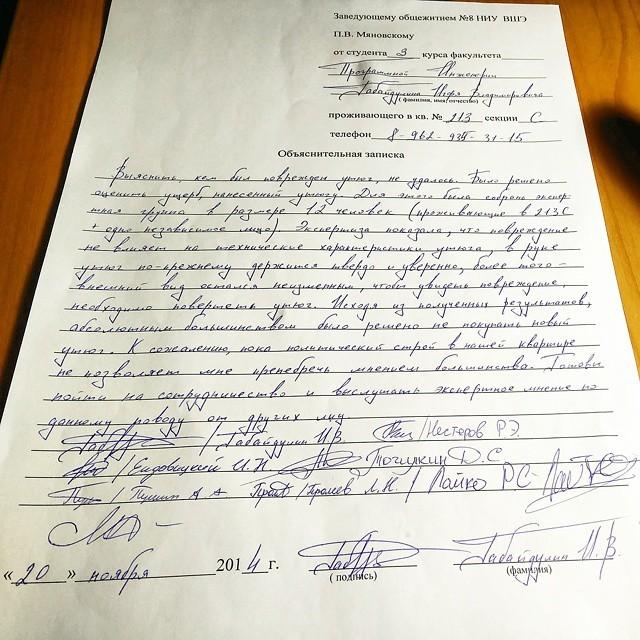 Заведующему общежитием №8 НИУ ВШЭ
П.В. Мяновскому
от студента 3 курса факультета
Программной Инженерии
Габайдулина Игоря Владимировича
( фамилия, имя/отчество)
проживающего в кв. № 213 секции С
телефон 8-962-934-31-15
Объяснительная записка
Выяснить, кем был поврежден утюг, не удалось. Было решено
оценить ущерб, нанесенный утюгу. Для этого была собрана экспер-
тная группа, в размере 12 человек (проживающие в 213С
+ одно независимое лицо). Экспертиза показала, что повреждение
не влияет на технические характеристики утюга, в руке
утюг по-прежнему держится твердо и уверенно, более того -
внешний вид остался неизменным, чтобы увидеть повреждение,
необходимо повертеть утюг. Исходя из полученных результатов,
абсолютным большинством было решено не покупать новый
утюг. К сожалению, пока политический строй в нашей квартире
не позволяет мне пренебречь мнением большинства. Готовы
пойти на сотрудничество и выслушать экспертное мнение по
данному поводу от других лиц
/ Габайдулин И.В. /Нестеров Р.Э.
/ Ендовицкий И.П. Точилкин Д.С.
/ Пушин А А / Л.Н. / Лайко РС
« 20 » ноября 2014 г. Габайдулин И.В.
( подпись) (фамилия)